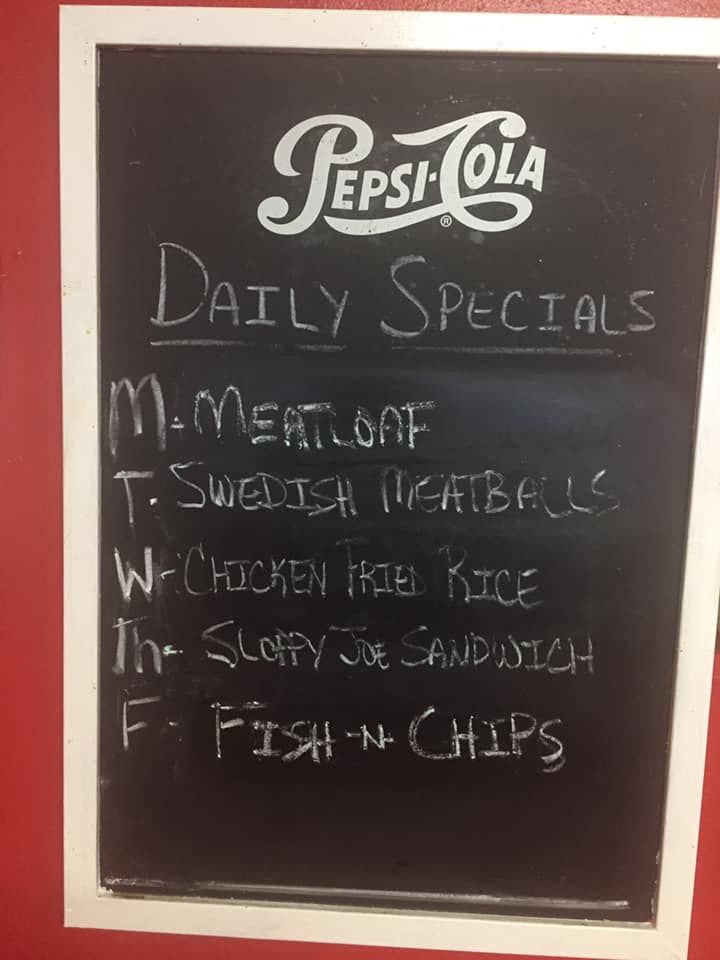 PEPSI-COLA ®
DAILY SPECIALS
M- MEATLOAF
T- SWEDISH MEATBALLS
W- CHICKEN FRIED RICE
Th- SLOPPY JOE SANDWICH
F- FISH-N-CHIPS